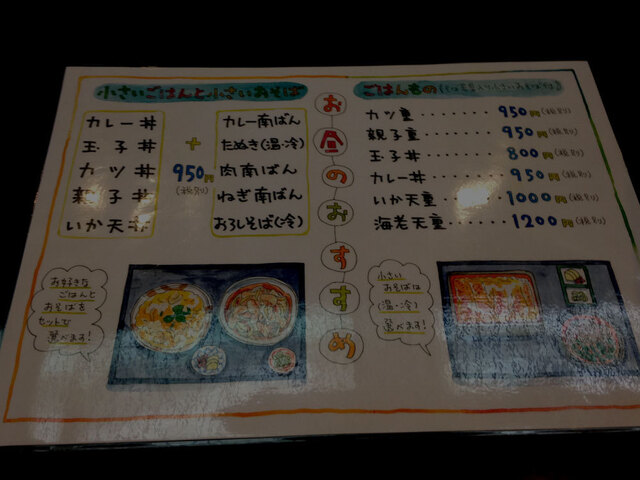 小さいごはんと小さいおそば
カレー丼
玉子丼
カツ丼
親子丼
いか天丼
+
950円
(税別)
カレー南ばん
たぬき(温・冷)
肉南ばん
ねぎ南ばん
おろしそば(冷)
お好きな
ごはんと
おそばを
セットで
選べます!
お
食
の
お
す
す
め
ごはんもの
カツ重・・・・・・・950円(税別)
親子重・・・・・・・950円(税別)
玉子丼・・・・・・・800円(税別)
カレー丼・・・・・・950円(税別)
いか天重・・・・・1000円(税別)
海老天重・・・・・1200円(税別)
小さい
おそばは
(温・冷)
選べます!